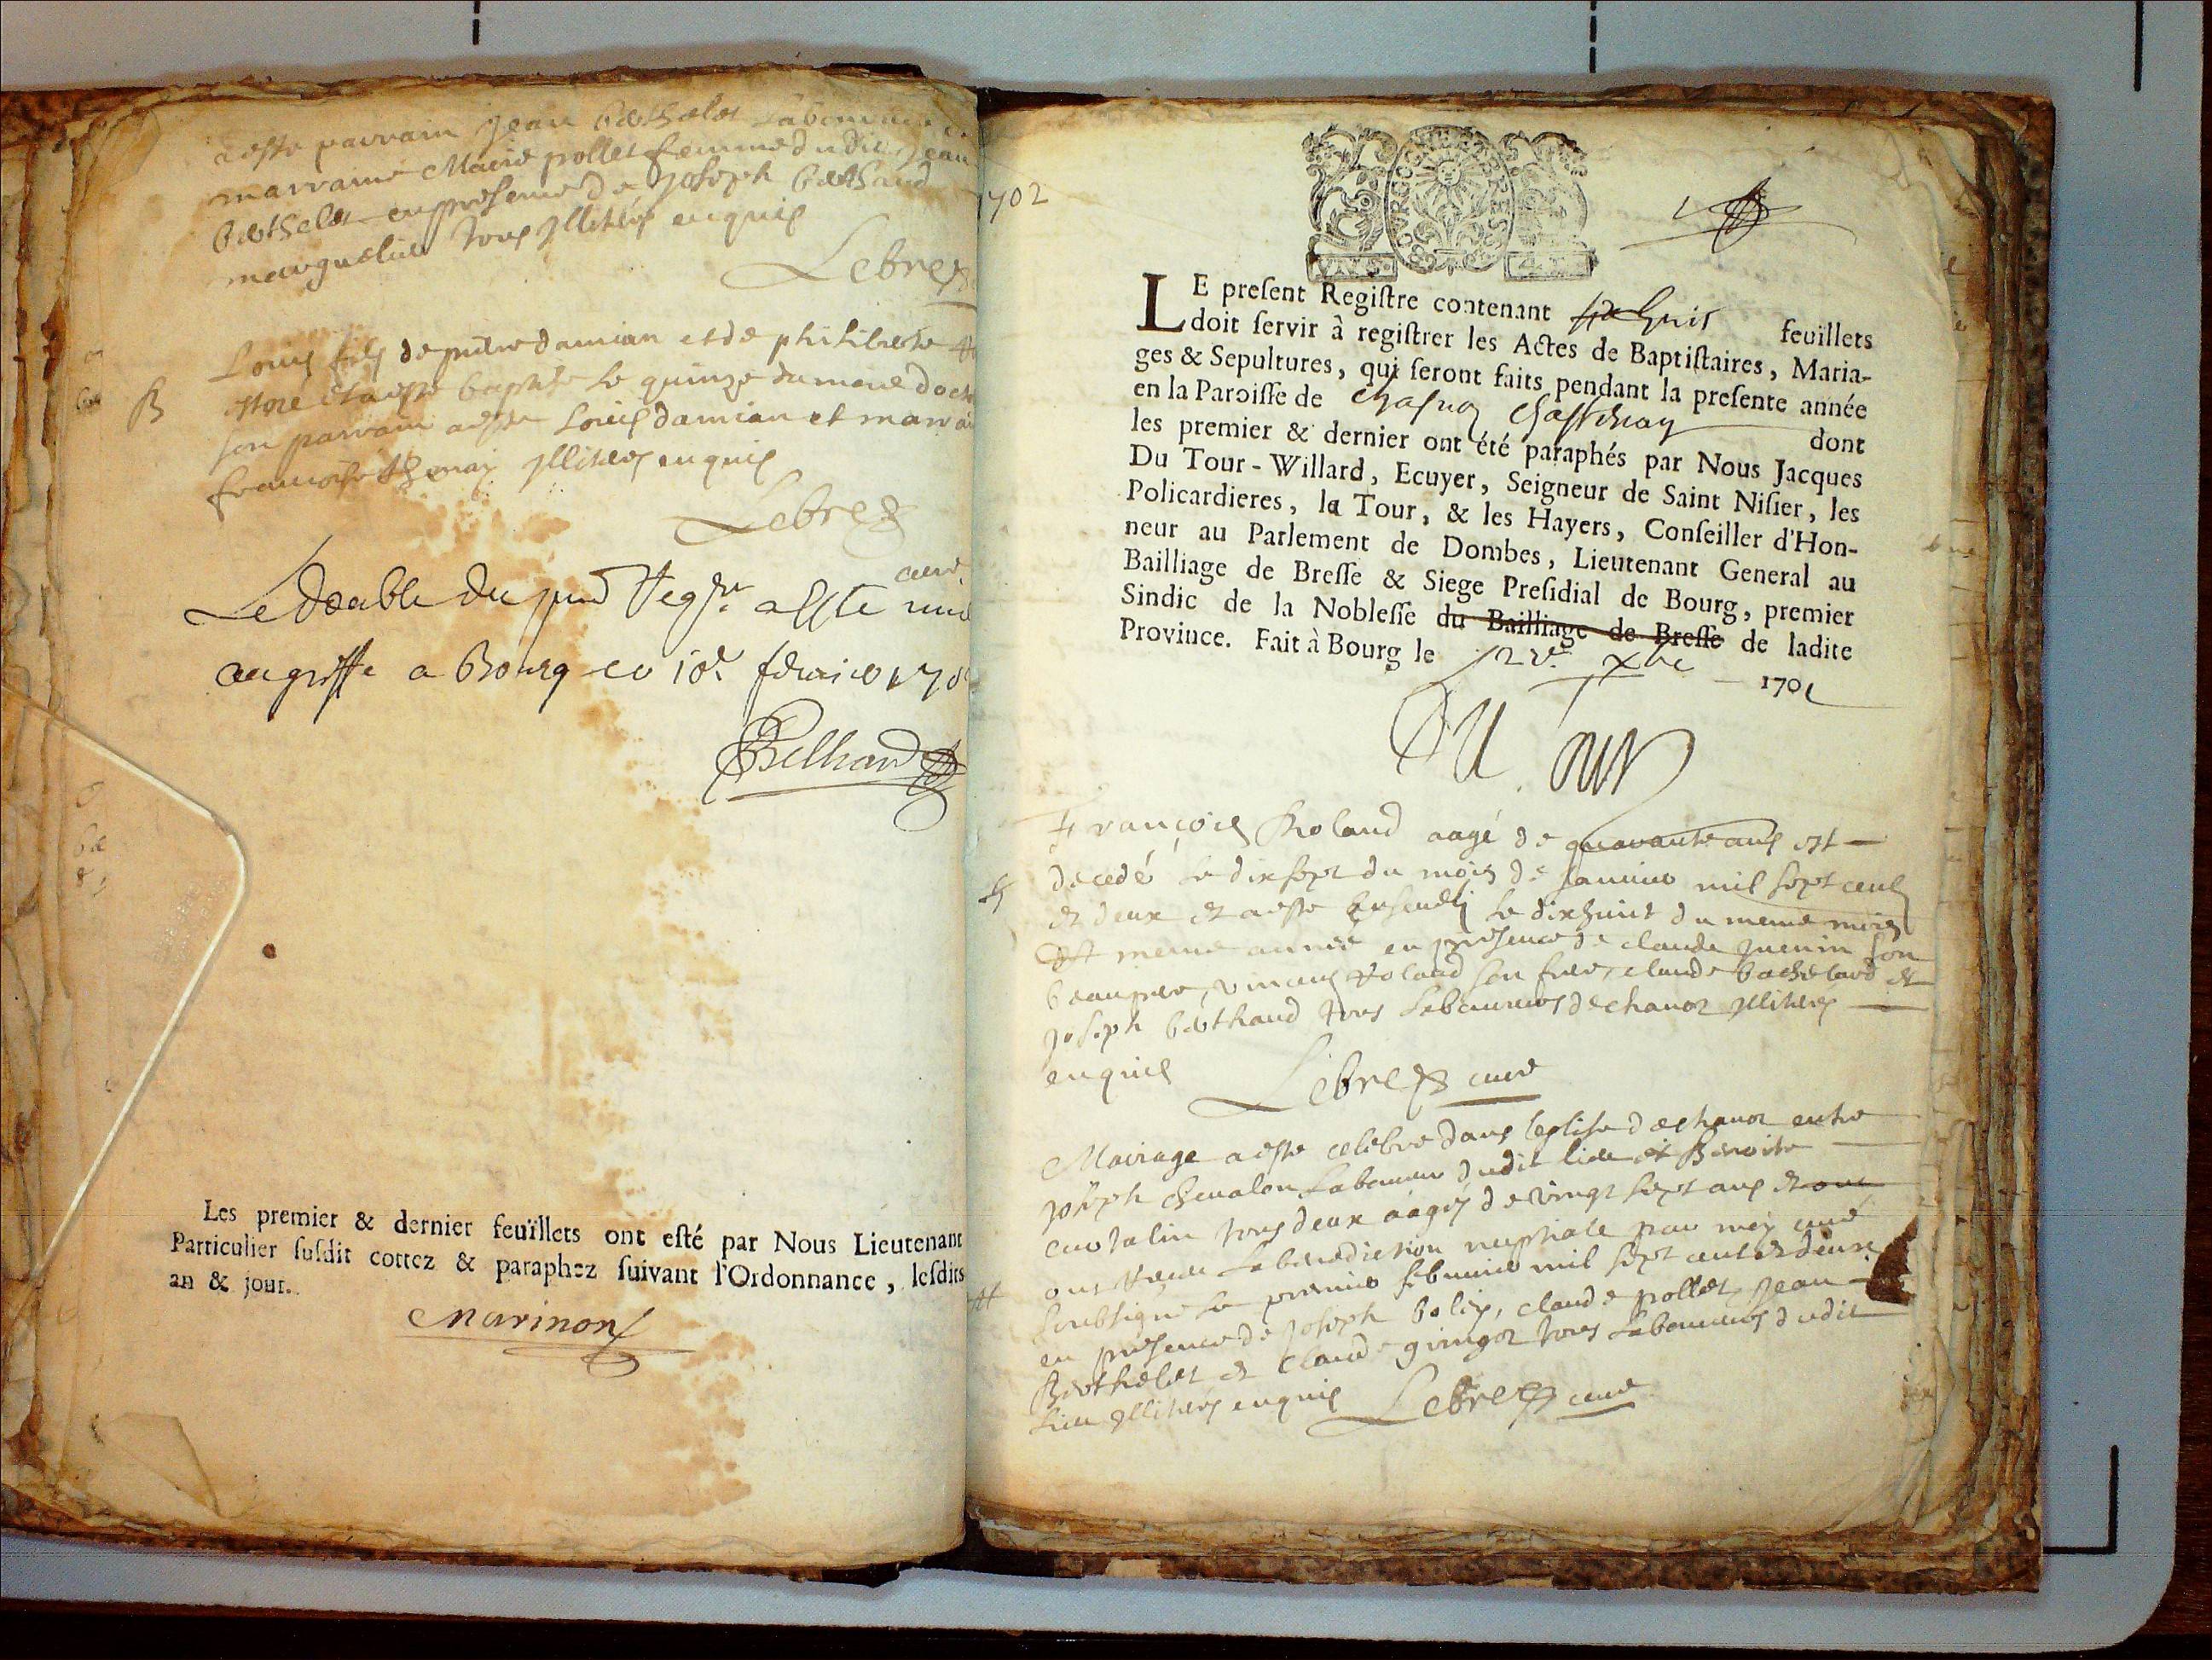 a esté parrain Jean berthelet
marraine Marie pollet femme dudit Jean
berthelet en presence de Joseph berthaud
marguelier tous illiterés enquis
Lebrez
B
Louis fils de pierre damian et de philiberte
a esté baptisé le quinze du meme
son parrain a esté Louis damian et
francoise themay illiterés enquis
Lebrez
curé
Le double du pnt Regre a esté
au greffe a Bourg ce 10e fevrier 170
Belhard
Les premier & dernier feuïllets ont esté par Nous Lieutenant
Particulier susdit cottez & paraphez suivant l'Ordonnance, lesdits
an & jour.
Marinon
1702
BOURG
LE present Registre contenant feuillets
doit servir à registrer les Actes de Baptistaires, Maria-
ges & Sepultures, qui seront faits pendant la presente année
en la Paroisse de dont
les premier & dernier ont été paraphés par Nous Jacques
Du Tour-Willard, Ecuyer, Seigneur de Saint Nisier, les
Policardieres, la Tour, & les Hayers, Conseiller d'Hon-
neur au Parlement de Dombes, Lieutenant General au
Bailliage de Bresse & Siege Presidial de Bourg, premier
Sindic de la Noblesse du Bailliage de Bresse de ladite
Province. Fait à Bourg le 22e xbre 1701
Du Tour
François Roland aagé de quarante ans est
decedé le dix sept du mois de Janvier mil sept cents
et deux et a esté Ensevely le dixhuict du meme mois
et meme année en presence de claude Juenin son
beaupere, vincent Roland son frere, claude bachelard et
Joseph berthaud tous laboureurs de chanoz illiterés
enquis
Lebrez curé
Mariage a esté celebré dans l'eglise de chanoz entre
Joseph chevalon Laboureur dudit lieu et Benoite
tous deux aagés de vingt sept ans et ont
receu la benediction nuptiale par moy curé
soubsigné le premier febvrier mil sept cent et deux
en presence de Joseph claude pollet, Jean
Berthelet et claude tous laboureurs dudit
lieu illiterés enquis Lebrez curé